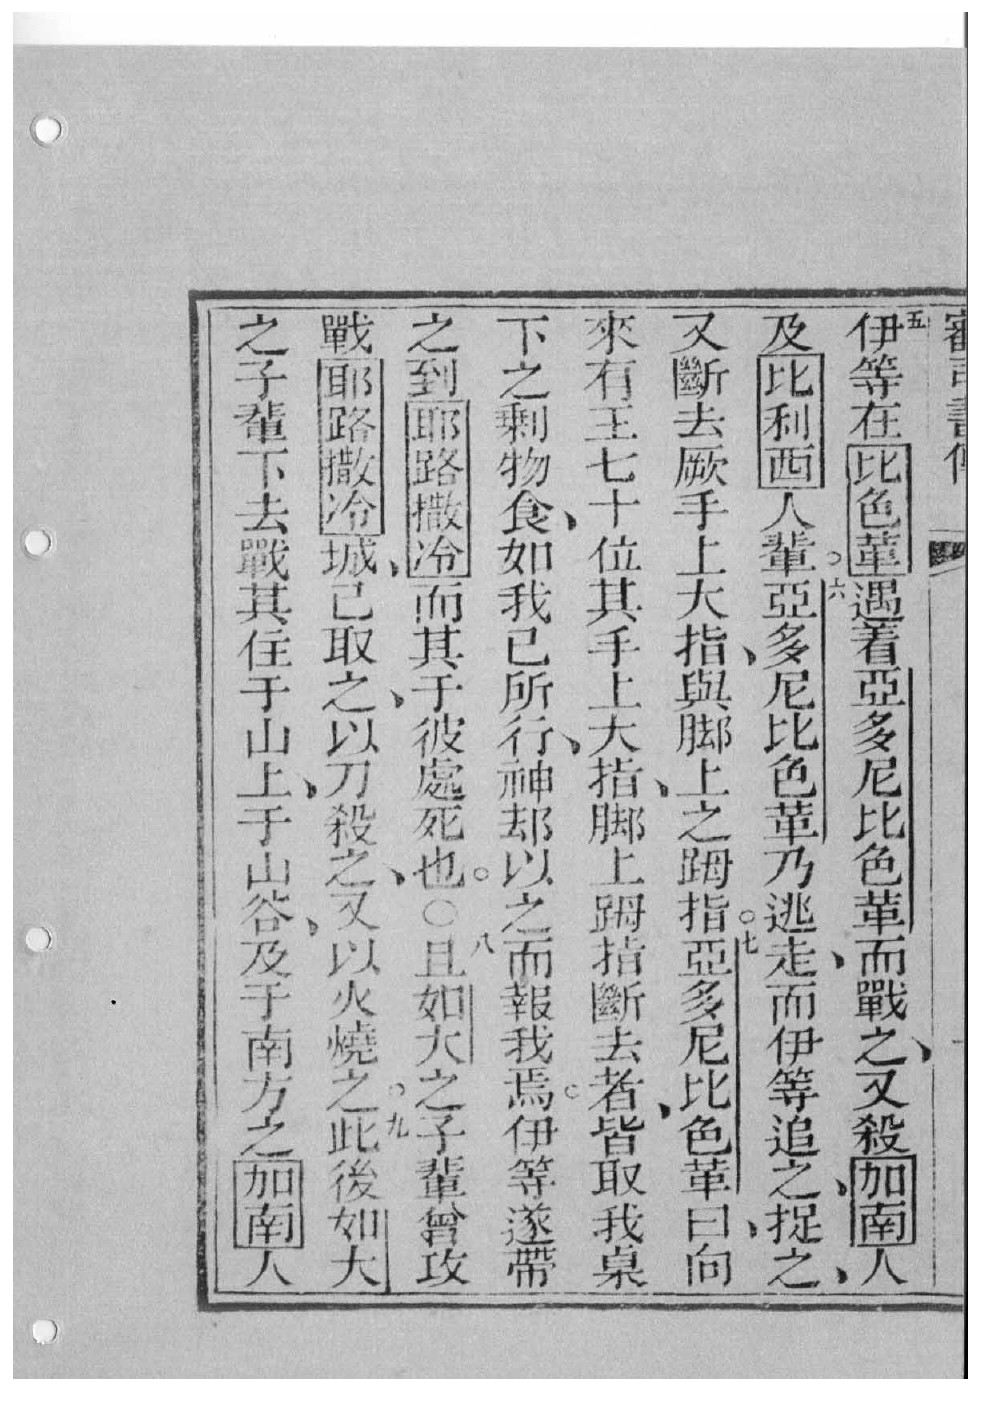 審司書傳
五伊等在比色葦遇着亞多尼比色葦而戰之、又殺加南人
及比利西人輩。六亞多尼比色葦乃逃走、而伊等追之、捉之、
又斷去厥手上大指、與脚上之踇指。七亞多尼比色葦曰、向
來有王七十位其手上大指、脚上踇指斷去者、皆取我桌
下之剩物食、如我已所行、神却以之而報我焉。伊等遂帶
之到耶路撒冷而其于彼處死也。〇八且如大之子輩曾攻
戰耶路撒冷城、已取之、以刀殺之、又以火燒之。九此後如大
之子輩下去戰其住于山上、于山谷、及于南方之加南人